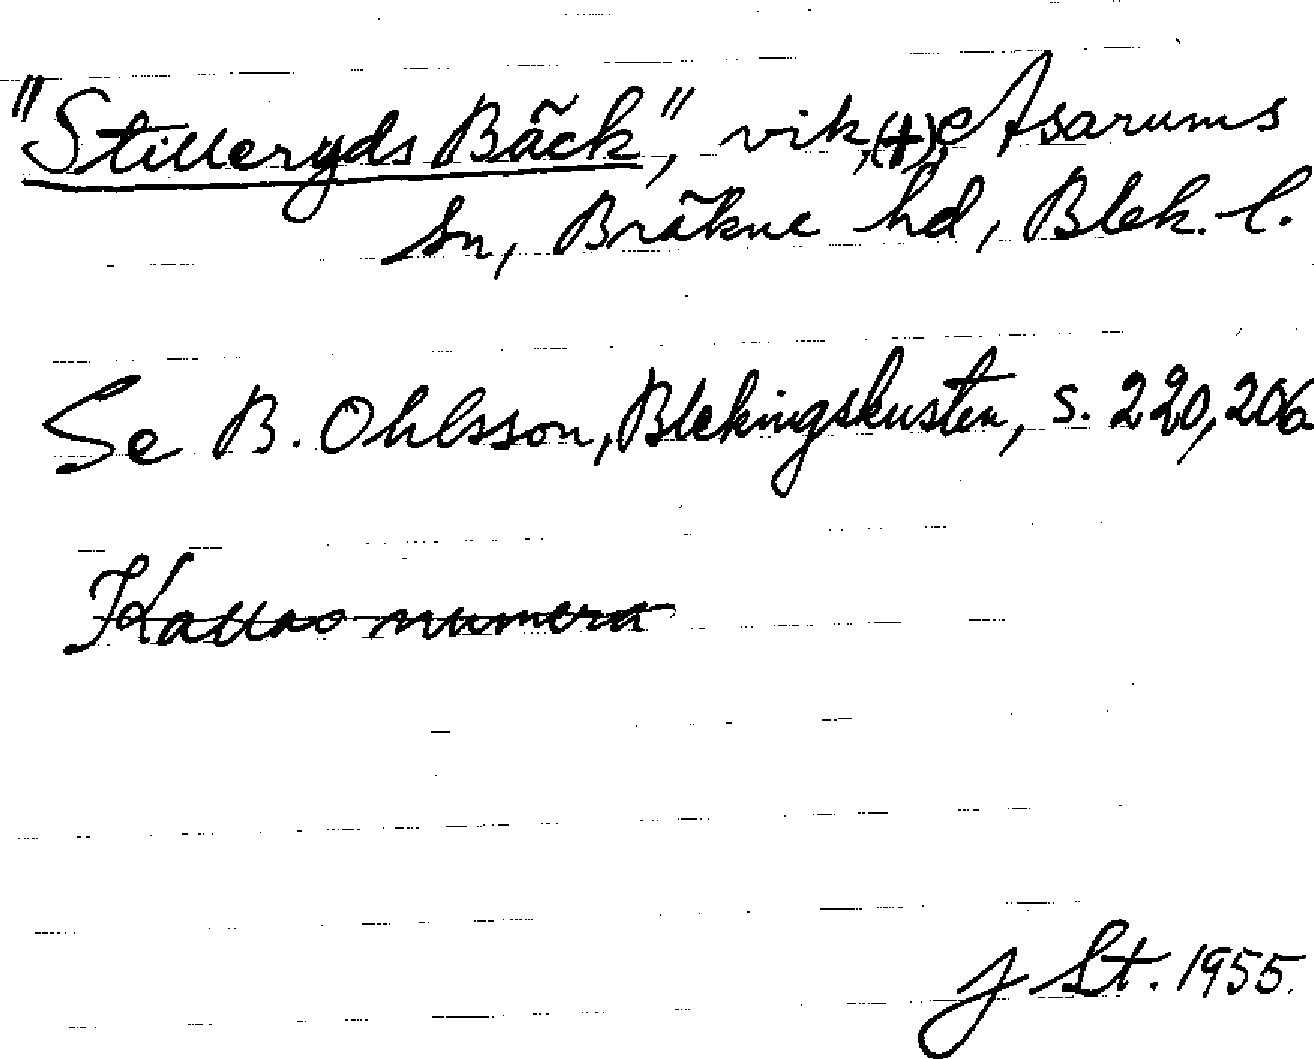 "Stilleryds Bäck", vik, (†), Asarums
sn, Bräkne hd, Blek. l.
Se B. Ohlsson, Blekingskusten, s. 220, 206
Kallas numera
J St. 1955.